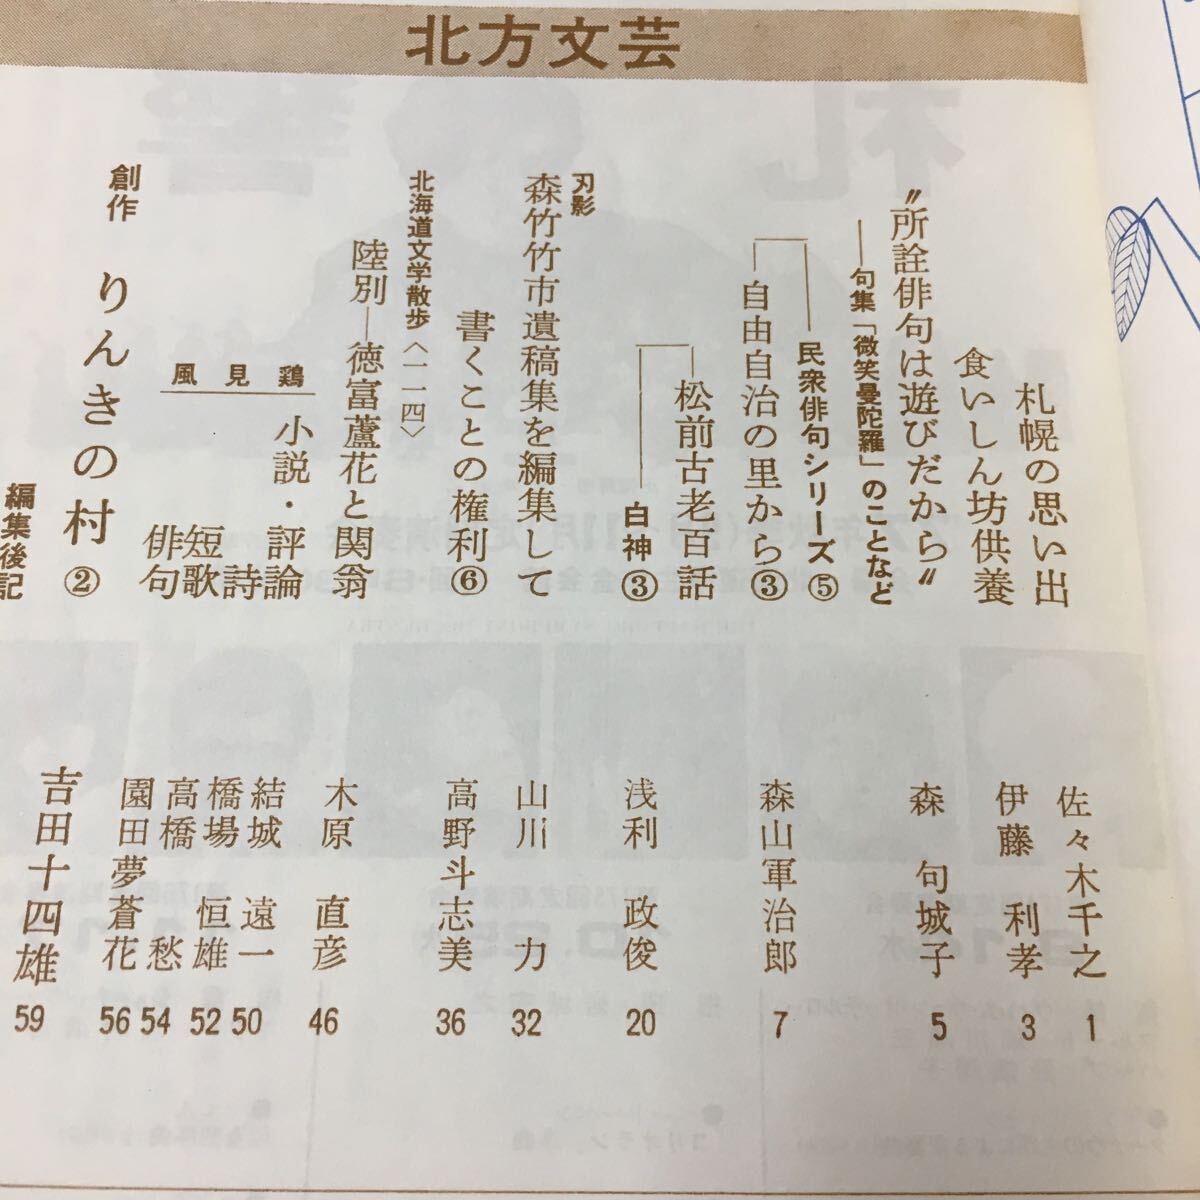 北方文芸
札幌の思い出
佐々木千之 1
食いしん坊供養
伊藤利孝 3
〝所詮俳句は遊びだから〟
――句集「微笑曼陀羅」のことなど
森句城子 5
――民衆俳句シリーズ⑤
自由自治の里から③
森山軍治郎 7
松前古老百話
――白神③
浅利政俊 20
刃影
森竹竹市遺稿集を編集して
山川力 32
書くことの権利⑥
高野斗志美 36
北海道文学散歩〈一一四〉
陸別―徳富蘆花と関翁
木原直彦 46
風見鶏
小説・評論
結城遠一 50
詩
橋場恒雄 52
短歌
高橋愁 54
俳句
園田夢蒼花 56
創作
りんきの村②
吉田十四雄 59
編集後記